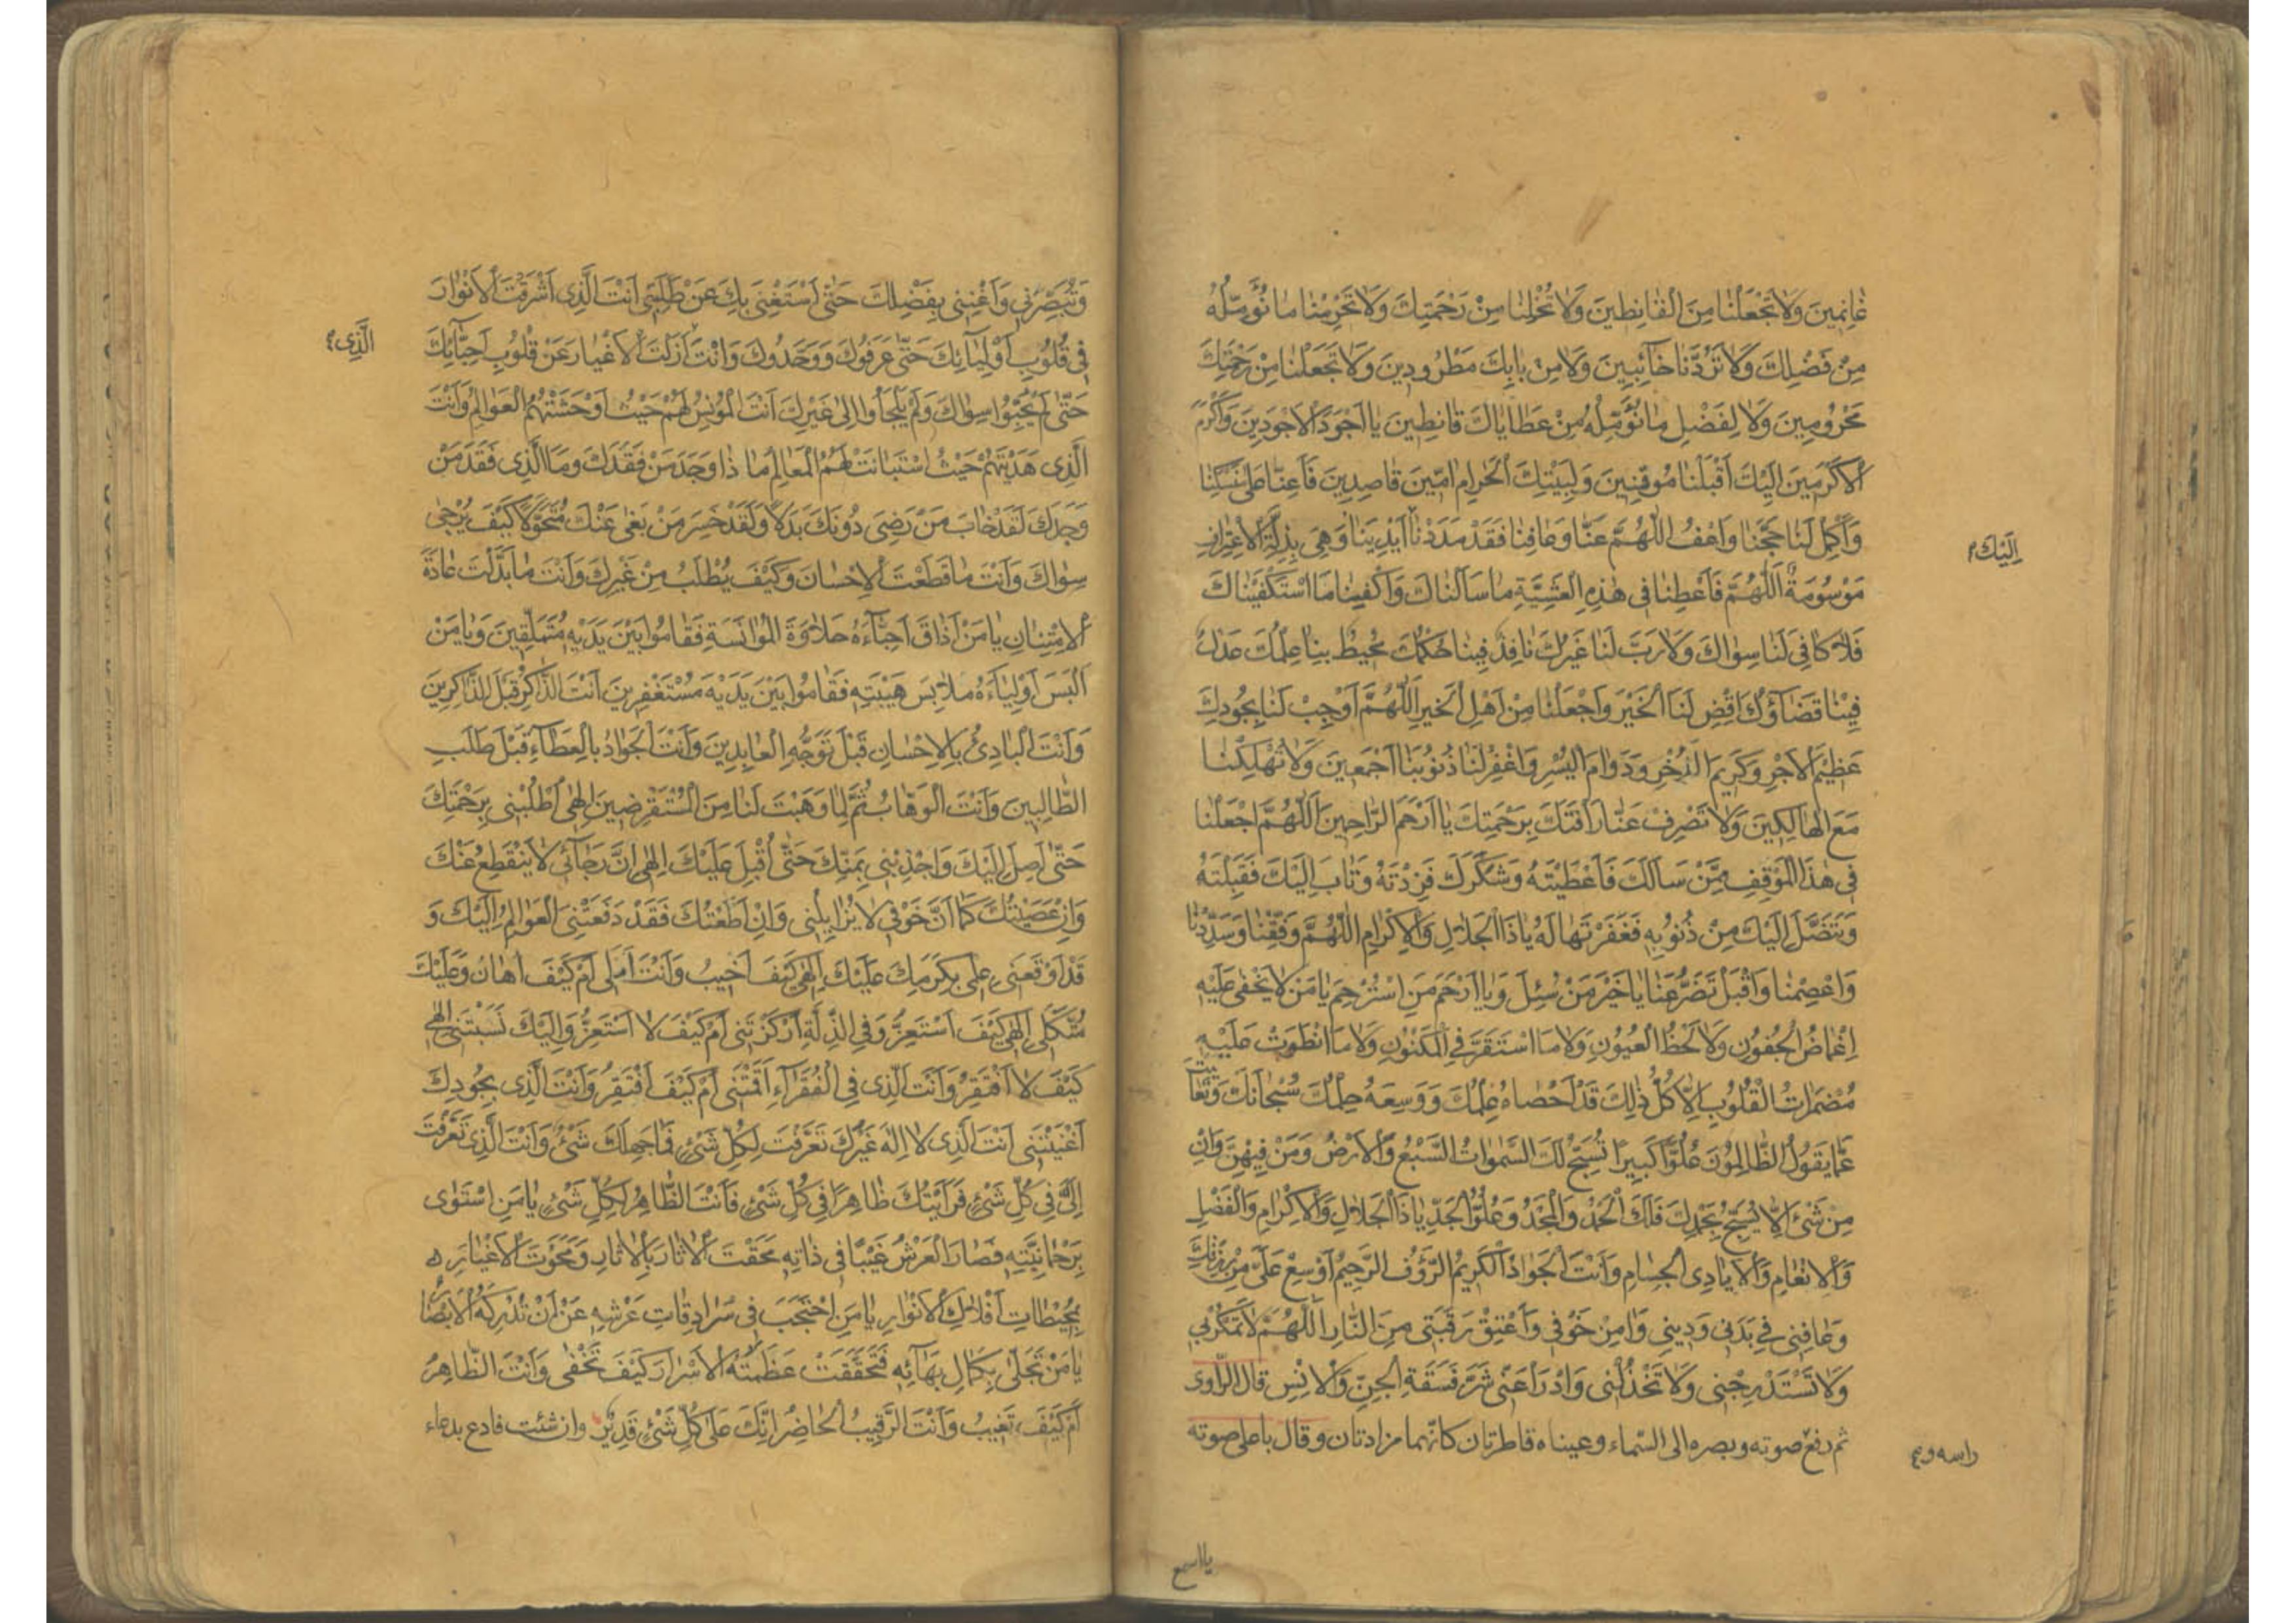 غٰانِمينَ وَلاٰ تَجْعَلْنٰا مِنَ الْقٰانِطينَ وَلاٰ تُخْلِنٰا مِنْ رَحْمَتِكَ وَلاٰ تَحْرِمْنٰا مٰا نُؤَمِّلُهُ
مِنْ فَضْلِكَ وَلاٰ تَرُدَّنٰا خٰآئِبينَ وَلاٰ مِنْ بٰابِكَ مَطْرُودينَ وَلاٰ تَجْعَلْنٰا مِنْ رَحْمَتِكَ
مَحْرُومينَ وَلاٰ لِفَضْلِ مٰا نُؤَمِّلُهُ مِنْ عَطٰايٰاكَ قٰانِطينَ يٰا اَجْوَدَ الْاَجْوَدينَ وَاَكْرَمَ
الْاَكْرَمينَ اِلَيْكَ اَقْبَلْنٰا مُوقِنينَ وَلِبَيْتِكَ الْحَرٰامِ اٰمّينَ قٰاصِدينَ فَاَعِنّٰا عَلىٰ مَنْسَكِنٰا
وَاَكْمِلْ لَنٰا حَجَّنٰا وَاعْفُ اللّٰهُمَّ عَنّٰا وَعٰافِنٰا فَقَدْ مَدَدْنٰا اَيْدِيَنٰا وَهِيَ بِذِلَّةِ الْاِعْتِرٰافِ
اِلَيْكَ
مَوْسُومَةٌ اَللّٰهُمَّ فَاَعْطِنٰا في هٰذِهِ الْعَشِيَّةِ مٰا سَاَلْنٰاكَ وَاكْفِنٰا مَا اسْتَكْفَيْنٰاكَ
فَلاٰ كٰافِيَ لَنٰا سِوٰاكَ وَلاٰ رَبَّ لَنٰا غَيْرُكَ نٰافِذٌ فينٰا حُكْمُكَ مُحيطٌ بِنٰا عِلْمُكَ عَدْلٌ
فينٰا قَضٰآؤُكَ اقْضِ لَنَا الْخَيْرَ وَاجْعَلْنٰا مِنْ اَهْلِ الْخَيْرِ اَللّٰهُمَّ اَوْجِبْ لَنٰا بِجُودِكَ
عَظيمَ الْاَجْرِ وَكَريمَ الذُّخْرِ وَدَوٰامَ الْيُسْرِ وَاغْفِرْ لَنٰا ذُنُوبَنٰا اَجْمَعينَ وَلاٰ تُهْلِكْنٰا
مَعَ الْهٰالِكينَ وَلاٰ تَصْرِفْ عَنّٰا رَاْفَتَكَ بِرَحْمَتِكَ يٰا اَرْحَمَ الرّٰاحِمينَ اَللّٰهُمَّ اجْعَلْنٰا
في هٰذَا الْمَوْقِفِ مِمَّنْ سَاَلَكَ فَاَعْطَيْتَهُ وَشَكَرَكَ فَزِدْتَهُ وَتٰابَ اِلَيْكَ فَقَبِلْتَهُ
وَتَنَصَّلَ اِلَيْكَ مِنْ ذُنُوبِهِ فَغَفَرْتَهٰا لَهُ يٰا ذَا الْجَلاٰلِ وَالْاِكْرٰامِ اللّٰهُمَّ وَفِّقْنٰا وَسَدِّدْنٰا
وَاعْصِمْنٰا وَاقْبَلْ تَضَرُّعَنٰا يٰا خَيْرَ مَنْ سُئِلَ وَيٰا اَرْحَمَ مَنِ اسْتُرْحِمَ يٰا مَنْ لاٰ يَخْفىٰ عَلَيْهِ
اِغْمٰاضُ الْجُفُونِ وَلاٰ لَحْظُ الْعُيُونِ وَلاٰ مَا اسْتَقَرَّ فِي الْمَكْنُونِ وَلاٰ مَا انْطَوَتْ عَلَيْهِ
مُضْمَرٰاتُ الْقُلُوبِ اَلاٰ كُلُّ ذٰلِكَ قَدْ اَحْصٰاهُ عِلْمُكَ وَوَسِعَهُ حِلْمُكَ سُبْحٰانَكَ وَتَعٰالَيْتَ
عَمّٰا يَقُولُ الظّٰالِمُونَ عُلُوًّا كَبيرًا تُسَبِّحُ لَكَ السَّمٰوٰاتُ السَّبْعُ وَالْاَرْضُ وَمَنْ فيهِنَّ وَاِنْ
مِنْ شَيْءٍ اِلاّٰ يُسَبِّحُ بِحَمْدِكَ فَلَكَ الْحَمْدُ وَالْمَجْدُ وَعُلُوُّ الْجَدِّ يٰا ذَا الْجَلاٰلِ وَالْاِكْرٰامِ وَالْفَضْلِ
وَالْاِنْعٰامِ وَالْاَيٰادِي الْجِسٰامِ وَاَنْتَ الْجَوٰادُ الْكَريمُ الرَّؤُفُ الرَّحيمُ اَوْسِعْ عَلَيَّ مِنْ رِزْقِكَ
وَعٰافِني في بَدَني وَديني وَاٰمِنْ خَوْفي وَاَعْتِقْ رَقَبَتي مِنَ النّٰارِ اَللّٰهُمَّ لاٰ تَمْكُرْ بي
وَلاٰ تَسْتَدْرِجْني وَلاٰ تَخْذُلْني وَادْرَاْ عَنّي شَرَّ فَسَقَةِ الْجِنِّ وَالْاِنْسِ قال الرّاوى
ثم رفع صوته وبصره الى السّماء وعيناه قاطرتان كانّهما مزادتان وقال باعلى صوته
راسه و
يا اسمع
وَتُبَصِّرَني وَاَغْنِني بِفَضْلِكَ حَتّٰى اَسْتَغْنِيَ بِكَ عَنْ طَلَبي اَنْتَ الَّذي اَشْرَقْتَ الْاَنْوٰارَ
في قُلُوبِ اَوْلِيٰآئِكَ حَتّٰى عَرَفُوكَ وَوَحَّدُوكَ وَاَنْتَ اَزَلْتَ الْاَغْيٰارَ عَنْ قُلُوبِ اَحِبّٰآئِكَ
الَّذِى
حَتّٰى لَمْ يُحِبُّوا سِوٰاكَ وَلَمْ يَلْجَاُوا اِلىٰ غَيْرِكَ اَنْتَ الْمُونِسُ لَهُمْ حَيْثُ اَوْحَشَتْهُمُ الْعَوٰالِمُ وَاَنْتَ
الَّذي هَدَيْتَهُمْ حَيْثُ اسْتَبٰانَتْ لَهُمُ الْمَعٰالِمُ مٰا ذٰا وَجَدَ مَنْ فَقَدَكَ وَمَا الَّذي فَقَدَ مَنْ
وَجَدَكَ لَقَدْ خٰابَ مَنْ رَضِيَ دُونَكَ بَدَلاً وَلَقَدْ خَسِرَ مَنْ بَغىٰ عَنْكَ مُتَحَوَّلاً كَيْفَ يُرْجىٰ
سِوٰاكَ وَاَنْتَ مٰا قَطَعْتَ الْاِحْسٰانَ وَكَيْفَ يُطْلَبُ مِنْ غَيْرِكَ وَاَنْتَ مٰا بَدَّلْتَ عٰادَةَ
الْاِمْتِنٰانِ يٰا مَنْ اَذٰاقَ اَحِبّٰآءَهُ حَلاٰوَةَ الْمُؤٰانَسَةِ فَقٰامُوا بَيْنَ يَدَيْهِ مُتَمَلِّقينَ وَيٰا مَنْ
اَلْبَسَ اَوْلِيٰآءَهُ مَلاٰبِسَ هَيْبَتِهِ فَقٰامُوا بَيْنَ يَدَيْهِ مُسْتَغْفِرينَ اَنْتَ الذّٰاكِرُ قَبْلَ الذّٰاكِرينَ
وَاَنْتَ الْبٰادِئُ بِالْاِحْسٰانِ قَبْلَ تَوَجُّهِ الْعٰابِدينَ وَاَنْتَ الْجَوٰادُ بِالْعَطٰآءِ قَبْلَ طَلَبِ
الطّٰالِبينَ وَاَنْتَ الْوَهّٰابُ ثُمَّ لِمٰا وَهَبْتَ لَنٰا مِنَ الْمُسْتَقْرِضينَ اِلٰهي اُطْلُبْني بِرَحْمَتِكَ
حَتّٰى اَصِلَ اِلَيْكَ وَاجْذِبْني بِمَنِّكَ حَتّٰى اُقْبِلَ عَلَيْكَ اِلٰهي اِنَّ رَجٰآئي لاٰ يَنْقَطِعُ عَنْكَ
وَاِنْ عَصَيْتُكَ كَمٰا اَنَّ خَوْفي لاٰ يُزٰايِلُني وَاِنْ اَطَعْتُكَ فَقَدْ دَفَعَتْنِي الْعَوٰالِمُ اِلَيْكَ وَ
قَدْ اَوْقَعَني عِلْمي بِكَرَمِكَ عَلَيْكَ اِلٰهي كَيْفَ اَخيبُ وَاَنْتَ اَمَلي اَمْ كَيْفَ اُهٰانُ وَعَلَيْكَ
مُتَّكَلي اِلٰهي كَيْفَ اَسْتَعِزُّ وَفِي الذِّلَّةِ اَرْكَزْتَني اَمْ كَيْفَ لاٰ اَسْتَعِزُّ وَاِلَيْكَ نَسَبْتَني اِلٰهي
كَيْفَ لاٰ اَفْتَقِرُ وَاَنْتَ الَّذي فِي الْفُقَرٰآءِ اَقَمْتَني اَمْ كَيْفَ اَفْتَقِرُ وَاَنْتَ الَّذي بِجُودِكَ
اَغْنَيْتَني اَنْتَ الَّذي لاٰ اِلٰهَ غَيْرُكَ تَعَرَّفْتَ لِكُلِّ شَيْءٍ فَمٰا جَهِلَكَ شَيْءٌ وَاَنْتَ الَّذي تَعَرَّفْتَ
اِلَيَّ في كُلِّ شَيْءٍ فَرَاَيْتُكَ ظٰاهِرًا في كُلِّ شَيْءٍ فَاَنْتَ الظّٰاهِرُ لِكُلِّ شَيْءٍ يٰا مَنِ اسْتَوىٰ
بِرَحْمٰانِيَّتِهِ فَصٰارَ الْعَرْشُ غَيْبًا في ذٰاتِهِ مَحَقْتَ الْاٰثٰارَ بِالْاٰثٰارِ وَمَحَوْتَ الْاَغْيٰارَ
بِمُحيطٰاتِ اَفْلاٰكِ الْاَنْوٰارِ يٰا مَنِ احْتَجَبَ في سُرٰادِقٰاتِ عَرْشِهِ عَنْ اَنْ تُدْرِكَهُ الْاَبْصٰارُ
يٰا مَنْ تَجَلّٰى بِكَمٰالِ بَهٰآئِهِ فَتَحَقَّقَتْ عَظَمَتُهُ الْاَسْرٰارَ كَيْفَ تَخْفىٰ وَاَنْتَ الظّٰاهِرُ
اَمْ كَيْفَ تَغيبُ وَاَنْتَ الرَّقيبُ الْحٰاضِرُ اِنَّكَ عَلىٰ كُلِّ شَيْءٍ قَديرٌ وان شئت فادع بدعاء